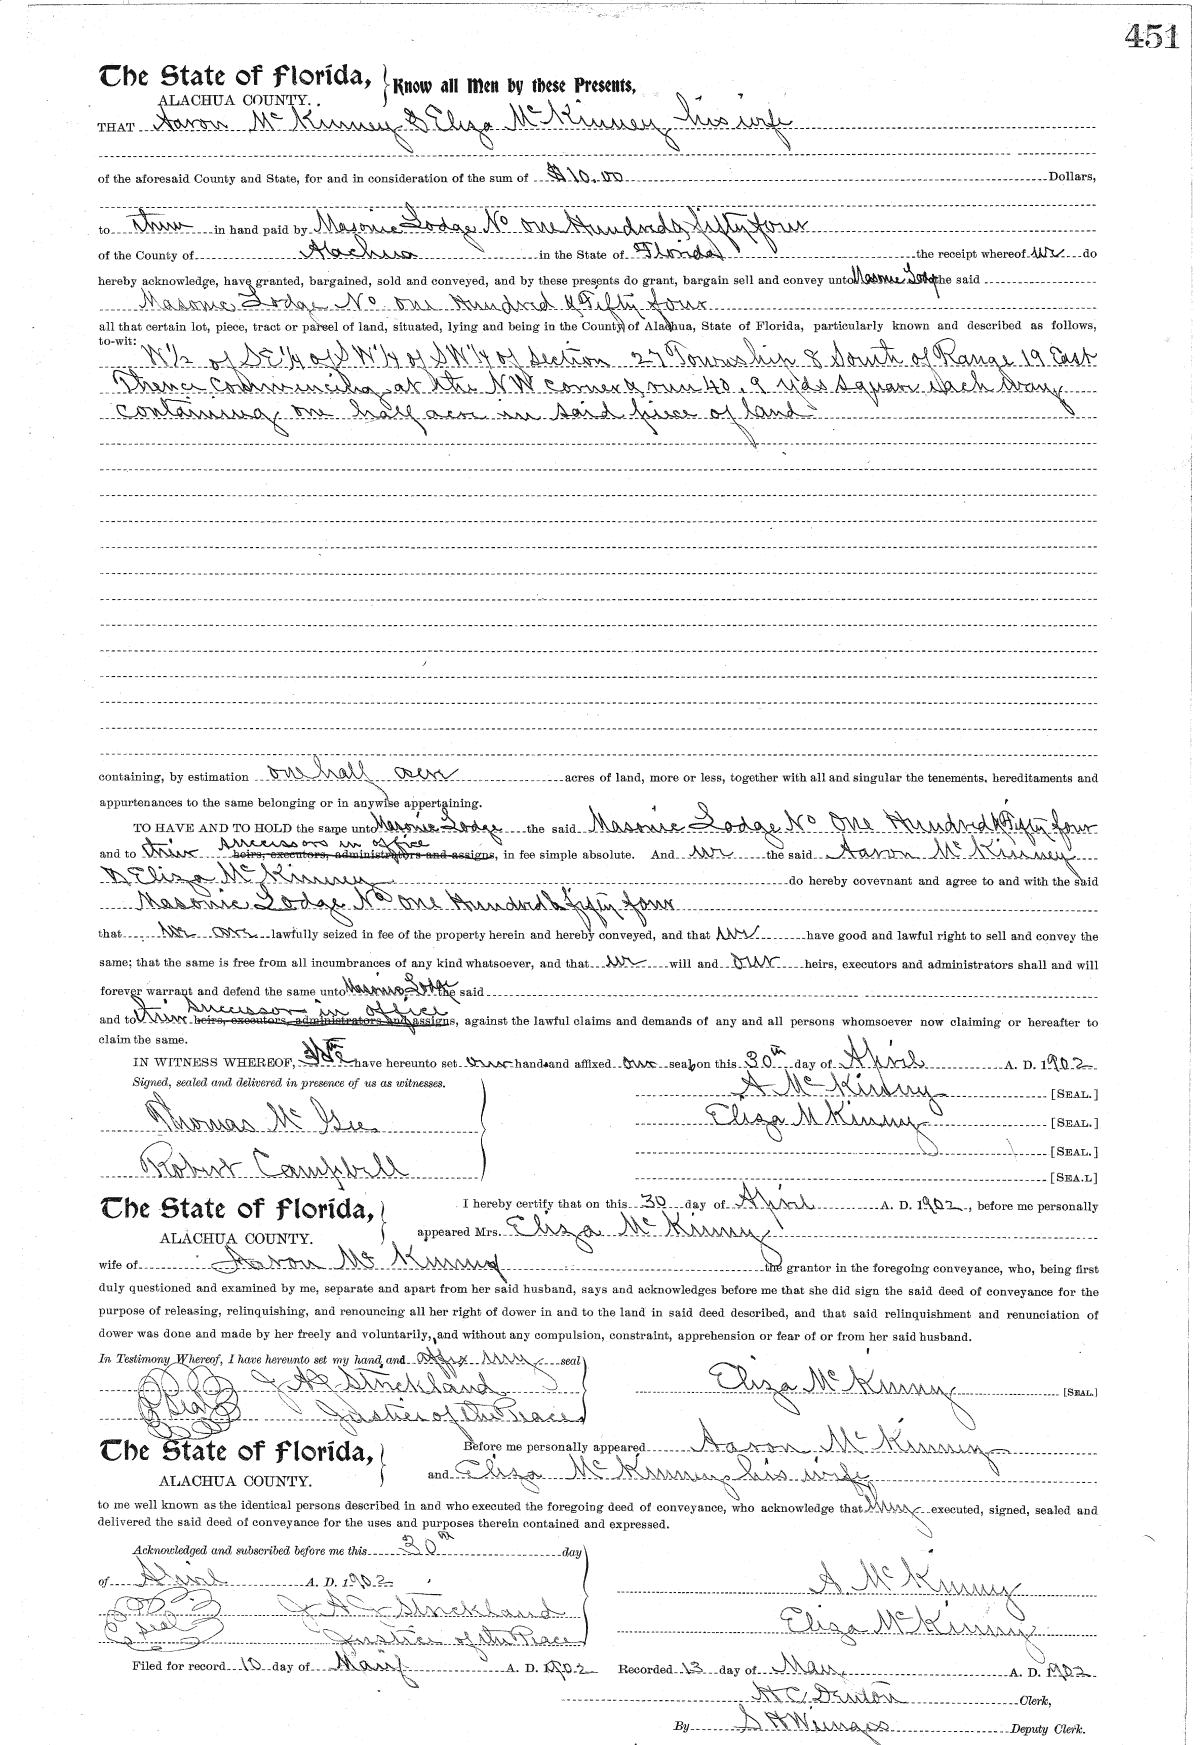 451
The State of Florida, Know all Men by these Presents,
ALACHUA COUNTY.
THAT Aaron McKinney & Eliza McKinney his wife
of the aforesaid County and State, for and in consideration of the sum of $10.00 Dollars,
to them in hand paid by Masonic Lodge No one Hundred & fifty four
of the County of Alachua in the State of Florida the receipt whereof we do
hereby acknowledge, have granted, bargained, sold and conveyed, and by these presents do grant, bargain sell and convey unto Masonic Lodge the said
Masonic Lodge No. one Hundred & Fifty four
all that certain lot, piece, tract or parsel of land, situated, lying and being in the County of Alachua, State of Florida, particularly known and described as follows,
to-wit:
W½ of SE¼ of SW¼ of SW¼ of Section 27 Township 8 South of Range 19 East
Thence Commencing at the NW corner & run 40.9 yds square each way
containing one half acre in said piece of land
containing, by estimation one half acre acres of land, more or less, together with all and singular the tenements, hereditaments and
appurtenances to the same belonging or in anywise appertaining.
TO HAVE AND TO HOLD the same unto Masonic Lodge the said Masonic Lodge No One Hundred & Fifty four
successors in office
and to their heirs, executors, administrators and assigns, in fee simple absolute. And we the said Aaron McKinney
& Eliza McKinney do hereby covevnant and agree to and with the said
Masonic Lodge No one Hundred & fifty four
that we are lawfully seized in fee of the property herein and hereby conveyed, and that we have good and lawful right to sell and convey the
same; that the same is free from all incumbrances of any kind whatsoever, and that we will and our heirs, executors and administrators shall and will
forever warrant and defend the same unto Masonic Lodge the said
successor in office
and to their heirs, executors, administrators and assigns, against the lawful claims and demands of any and all persons whomsoever now claiming or hereafter to
claim the same.
IN WITNESS WHEREOF, We have hereunto set our hands and affixed our seals on this 30th day of April A. D. 1902
Signed, sealed and delivered in presence of us as witnesses.
A McKinny [SEAL.]
Thomas McGee
Eliza McKinny [SEAL.]
[SEAL.]
Robert Campbell
[SEA.L]
The State of Florida,
ALACHUA COUNTY.
I hereby certify that on this 30 day of April A. D. 1902, before me personally
appeared Mrs. Eliza McKinny
wife of Aaron McKinny the grantor in the foregoing conveyance, who, being first
duly questioned and examined by me, separate and apart from her said husband, says and acknowledges before me that she did sign the said deed of conveyance for the
purpose of releasing, relinquishing, and renouncing all her right of dower in and to the land in said deed described, and that said relinquishment and renunciation of
dower was done and made by her freely and voluntarily, and without any compulsion, constraint, apprehension or fear of or from her said husband.
In Testimony Whereof, I have hereunto set my hand and affix my seal
J A Strickland
Eliza McKinny [SEAL.]
Seal Justice of the Peace
The State of Florida,
ALACHUA COUNTY.
Before me personally appeared Aaron McKinney
and Eliza McKinney his wife
to me well known as the identical persons described in and who executed the foregoing deed of conveyance, who acknowledge that they executed, signed, sealed and
delivered the said deed of conveyance for the uses and purposes therein contained and expressed.
Acknowledged and subscribed before me this 30th day
of April A. D. 1902
A McKinny
Seal J A Strickland
Eliza McKinny
Justice of the Peace
Filed for record 10 day of May A. D. 1902 Recorded 13 day of May A. D. 1902
H C Denton Clerk,
By S H Wienges Deputy Clerk.